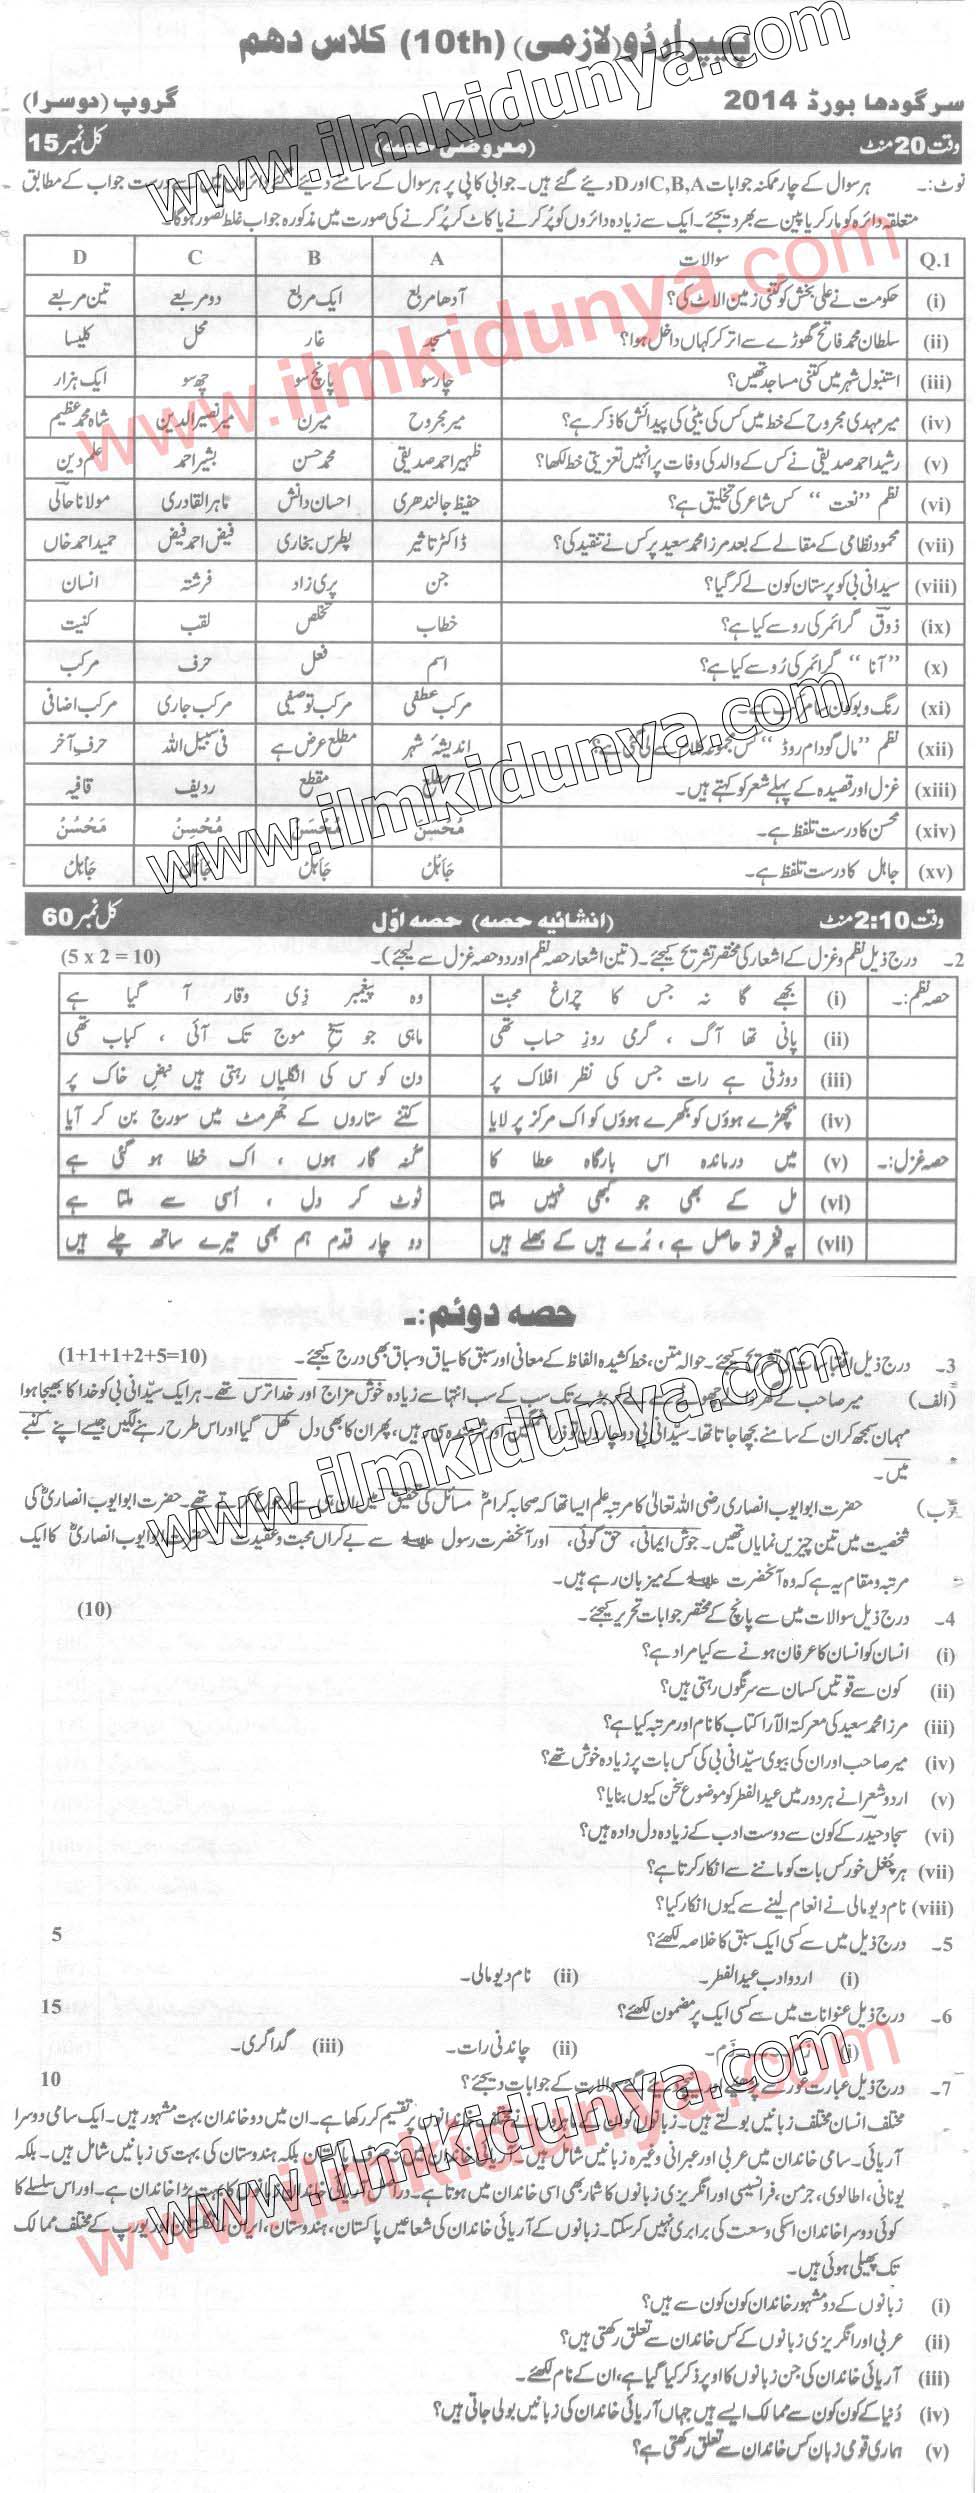 پیپر اُردُو (لازمی) (10th) کلاس دهم
سرگودها بورڈ 2014 گروپ (دوسرا)
وقت 20 منٹ (معروضی حصہ) کل نمبر 15
نوٹ:۔ ہر سوال کے چار ممکنہ جوابات C,B,A اور D دیئے گئے ہیں۔ جوابی کاپی پر ہر سوال کے سامنے دیئے گئے دائروں میں سے درست جواب کے مطابق
متعلقہ دائرہ کو مارکر یا پین سے بھر دیجئے۔ ایک سے زیادہ دائروں کو پُر کرنے یا کاٹ کر پُر کرنے کی صورت میں مذکورہ جواب غلط تصور ہوگا۔
Q.1 سوالات A B C D
(i) حکومت نے علی بخش کو کتنی زمین الاٹ کی؟ آدھا مربع ایک مربع دو مربعے تین مربعے
(ii) سلطان محمد فاتح گھوڑے سے اتر کر کہاں داخل ہوا؟ مسجد غار محل کلیسا
(iii) استنبول شہر میں کتنی مساجد تھیں؟ چار سو پانچ سو چھ سو ایک ہزار
(iv) میر مہدی مجروح کے خط میں کس کی بیٹی کی پیدائش کا ذکر ہے؟ میر مجروح میرن میر نصیر الدین شاہ محمد عظیم
(v) رشید احمد صدیقی نے کس کے والد کی وفات پر انہیں تعزیتی خط لکھا؟ ظہیر احمد صدیقی محمد حسن بشیر احمد علم دین
(vi) نظم ”نعت“ کس شاعر کی تخلیق ہے؟ حفیظ جالندھری احسان دانش ماہر القادری مولانا حالی
(vii) محمود نظامی کے مقالے کے بعد مرزا محمد سعید پر کس نے تنقید کی؟ ڈاکٹر تاثیر پطرس بخاری فیض احمد فیض حمید احمد خاں
(viii) سیدانی بی کو پرستان کون لے کر گیا؟ جن پری زاد فرشتہ انسان
(ix) ذوق گرائمر کی رو سے کیا ہے؟ خطاب تخلص لقب کنیت
(x) ”آنا“ گرائمر کی رُو سے کیا ہے؟ اسم فعل حرف مرکب
(xi) رنگ و بو کون سا مرکب ہے۔ مرکب عطفی مرکب توصیفی مرکب جاری مرکب اضافی
(xii) نظم ”مال گودام روڈ“ کس مجموعہ کلام سے لی گئی ہے؟ اندیشۂ شہر مطلع عرض ہے فی سبیل اللہ حرفِ آخر
(xiii) غزل اور قصیدہ کے پہلے شعر کو کہتے ہیں۔ مطلع مقطع ردیف قافیہ
(xiv) محسن کا درست تلفظ ہے۔ مُحْسِنْ مُحْسَنْ مُحُسِنْ مَحُسُنْ
(xv) جاہل کا درست تلفظ ہے۔
وقت 2:10 منٹ (انشائیہ حصہ) حصہ اوّل کل نمبر 60
2۔ درج ذیل نظم و غزل کے اشعار کی مختصر تشریح کیجئے۔ (تین اشعار حصہ نظم اور دو حصہ غزل سے لیجئے)۔ (5 x 2 = 10)
حصہ نظم:۔ (i) بجھے گا نہ جس کا چراغ محبت وہ پیغمبر ذِی وقار آ گیا ہے
(ii) پانی تھا آگ ، گرمی روزِ حساب تھی ماہی جو سیخِ موج تک آئی ، کباب تھی
(iii) دوڑتی ہے رات جس کی نظر افلاک پر دن کو س کی انگلیاں رہتی ہیں نبضِ خاک پر
(iv) بچھڑے ہوؤں کو بکھرے ہوؤں کو اک مرکز پر لایا کتنے ستاروں کے جُھرمٹ میں سورج بن کر آیا
حصہ غزل:۔ (v) میں درماندہ اس بارگاہ عطا کا گنہ گار ہوں ، اک خطا ہو گئی ہے
(vi) مل کے بھی جو کبھی نہیں ملتا ٹوٹ کر دل ، اُسی سے ملتا ہے
(vii) یہ فخر تو حاصل ہے ، بُرے ہیں کے بھلے ہیں دو چار قدم ہم بھی تیرے ساتھ چلے ہیں
حصہ دوئم:۔
3۔ درج ذیل اقتباسات کی تشریح کیجئے۔ حوالہ متن، خط کشیدہ الفاظ کے معانی اور سبق کا سیاق و سباق بھی درج کیجئے۔ (1+1+1+2+5=10)
(الف) میر صاحب کے گھر والے چھوٹے سے لے کر بڑے تک سب کے سب انتہا سے زیادہ خوش مزاج اور خدا ترس تھے۔ ہر ایک سیّدانی بی کو خدا کا بھیجا ہوا
مہمان سمجھ کر ان کے سامنے بچھا جاتا تھا۔ سیّدانی بی دو چار دن تو ذرا غمگین اور شرمندہ سی رہیں، پھر ان کا بھی دل کھل گیا اور اس طرح رہنے لگیں جیسے اپنے کنبے
میں۔
(ب) حضرت ابو ایوب انصاری رضی اللہ تعالیٰ کا مرتبہ علم ایسا تھا کہ صحابہ کرام مسائل کی تحقیق میں ان ہی سے رجوع کرتے تھے۔ حضرت ابو ایوب انصاری کی
شخصیت میں تین چیزیں نمایاں تھیں۔ جوش ایمانی، حق گوئی، اور آنحضرت رسول ﷺ سے بے کراں محبت و عقیدت۔ حضرت ابو ایوب انصاری کا ایک
مرتبہ و مقام یہ ہے کہ وہ آنحضرت ﷺ کے میزبان رہے ہیں۔
4۔ درج ذیل سوالات میں سے پانچ کے مختصر جوابات تحریر کیجئے۔ (10)
(i) انسان کو انسان کا عرفان ہونے سے کیا مراد ہے؟
(ii) کون سے قوتیں کسان سے سرنگوں رہتی ہیں؟
(iii) مرزا محمد سعید کی معرکتہ الآرا کتاب کا نام اور مرتبہ کیا ہے؟
(iv) میر صاحب اور ان کی بیوی سیّدانی بی کی کس بات پر زیادہ خوش تھے؟
(v) اردو شعرا نے ہر دور میں عید الفطر کو موضوع سخن کیوں بنایا؟
(vi) سجاد حیدر کے کون سے دوست ادب کے زیادہ دل دادہ ہیں؟
(vii) ہر چُغل خور کس بات کو ماننے سے انکار کرتا ہے؟
(viii) نام دیو مالی نے انعام لینے سے کیوں انکار کیا؟
5۔ درج ذیل میں سے کسی ایک سبق کا خلاصہ لکھئے؟ 5
(i) اردو ادب عید الفطر۔ (ii) نام دیو مالی۔
6۔ درج ذیل عنوانات میں سے کسی ایک پر مضمون لکھئے؟ 15
(i) (ii) چاندنی رات۔ (iii) گداگری۔
7۔ درج ذیل عبارت غور سے پڑھیے اور نیچے دیئے گئے سوالات کے جوابات دیجئے؟ 10
مختلف انسان مختلف زبانیں بولتے ہیں۔ زبانوں کو ان کے ماہروں نے مختلف خاندانوں پر تقسیم کر رکھا ہے۔ ان میں دو خاندان بہت مشہور ہیں۔ ایک سامی دوسرا
آریائی۔ سامی خاندان میں عربی اور عبرانی وغیرہ زبانیں شامل ہیں۔ آریائی خاندان میں نہ صرف پاکستان بلکہ ہندوستان کی بہت سی زبانیں شامل ہیں۔ بلکہ
یونانی، اطالوی، جرمن، فرانسیسی اور انگریزی زبانوں کا شمار بھی اسی خاندان میں ہوتا ہے۔ دراصل آریائی خاندان زبانوں کا بہت بڑا خاندان ہے۔ اور اس سلسلے کا
کوئی دوسرا خاندان اسکی وسعت کی برابری نہیں کر سکتا۔ زبانوں کے آریائی خاندان کی شعاعیں پاکستان، ہندوستان، ایران، انگلستان اور یورپ کے مختلف ممالک
تک پھیلی ہوئی ہیں۔
(i) زبانوں کے دو مشہور خاندان کون کون سے ہیں؟
(ii) عربی اور انگریزی زبانوں کے کس خاندان سے تعلق رکھتی ہیں؟
(iii) آریائی خاندان کی جن زبانوں کا اوپر ذکر کیا گیا ہے، ان کے نام لکھئے۔
(iv) دُنیا کے کون کون سے ممالک ایسے ہیں جہاں آریائی خاندان کی زبانیں بولی جاتی ہیں؟
(v) ہماری قومی زبان کس خاندان سے تعلق رکھتی ہے؟
www.ilmkidunya.com
www.ilmkidunya.com
www.ilmkidunya.com
www.ilmkidunya.com
www.ilmkidunya.com
www.ilmkidunya.com